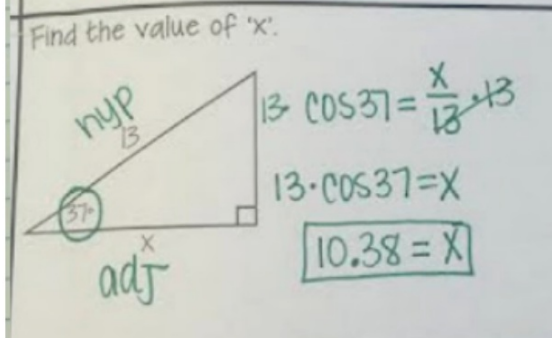 Find the value of 'x'.
hyp
13
37°
x
adj
13· cos37 = x/13 ·13
13·cos37=x
10.38 = x